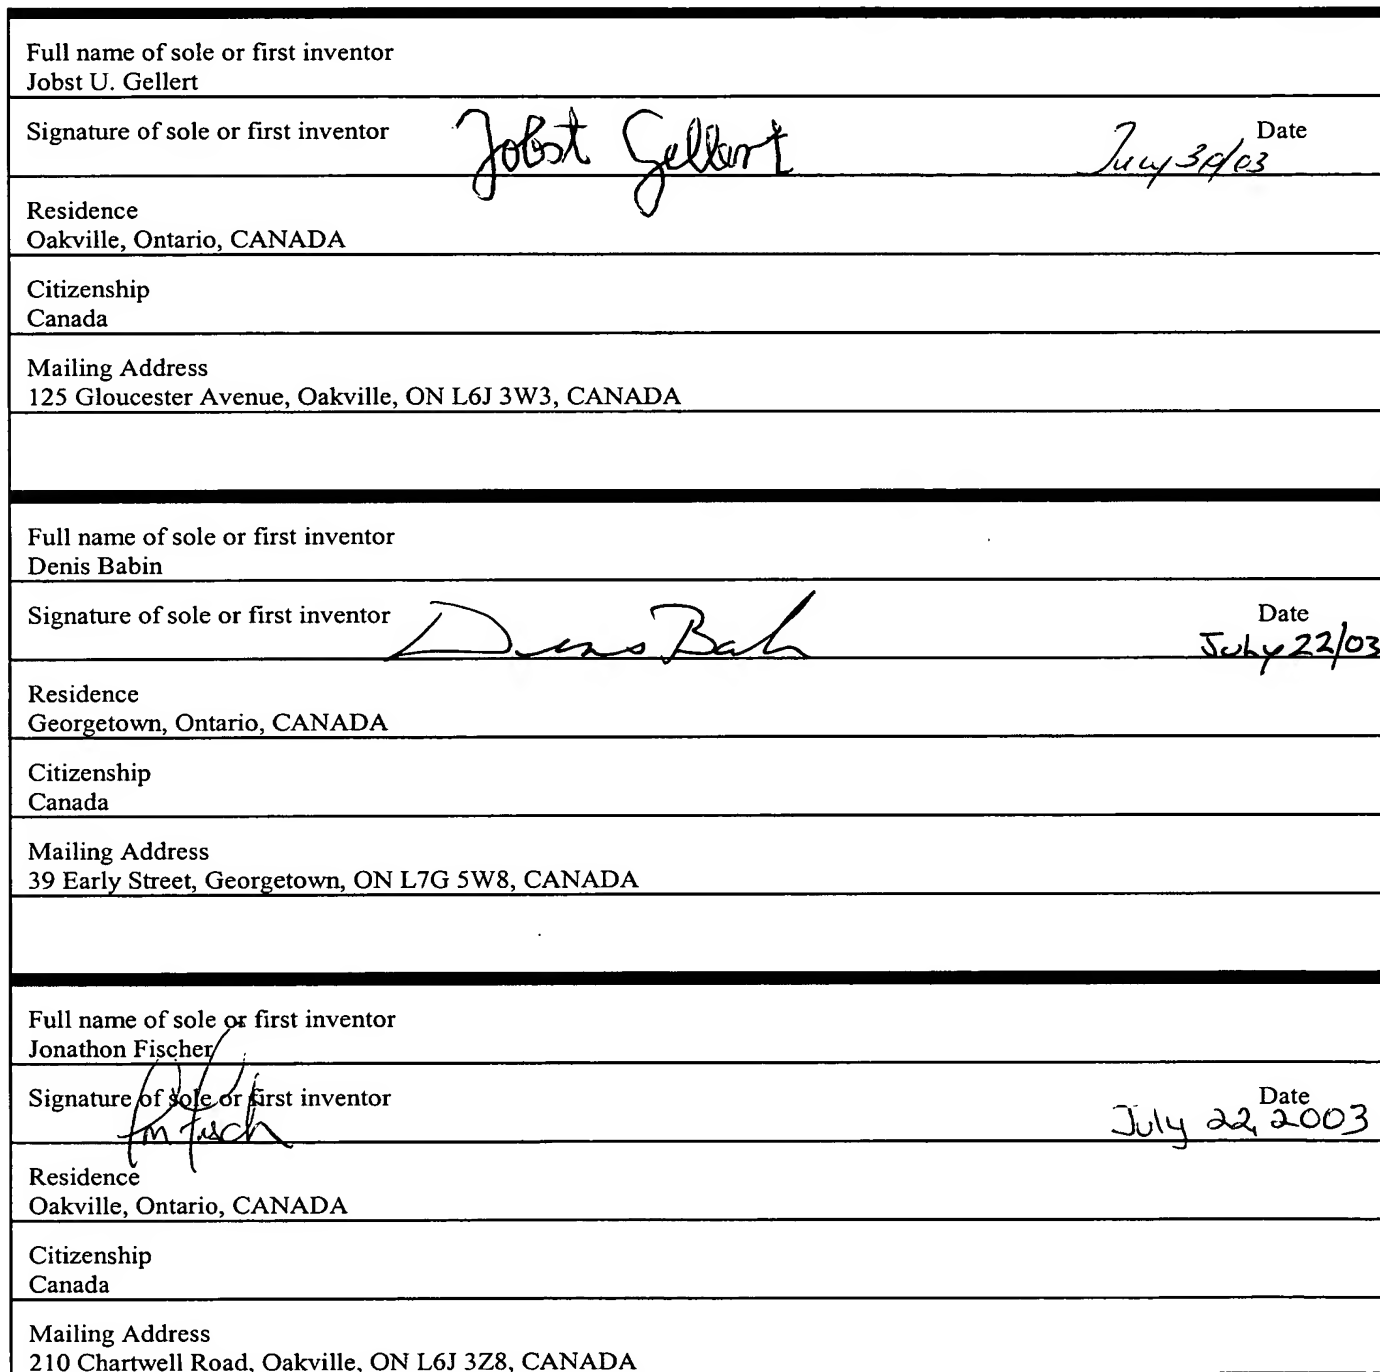 Full name of sole or first inventor
Jobst U. Gellert
Signature of sole or first inventor Jobst Gellert Date
July 30/03
Residence
Oakville, Ontario, CANADA
Citizenship
Canada
Mailing Address
125 Gloucester Avenue, Oakville, ON L6J 3W3, CANADA
Full name of sole or first inventor
Denis Babin
Signature of sole or first inventor Denis Date
July 22/03
Residence
Georgetown, Ontario, CANADA
Citizenship
Canada
Mailing Address
39 Early Street, Georgetown, ON L7G 5W8, CANADA
Full name of sole or first inventor
Jonathon Fischer
Signature of sole or first inventor Date
July 22, 2003
Residence
Oakville, Ontario, CANADA
Citizenship
Canada
Mailing Address
210 Chartwell Road, Oakville, ON L6J 3Z8, CANADA